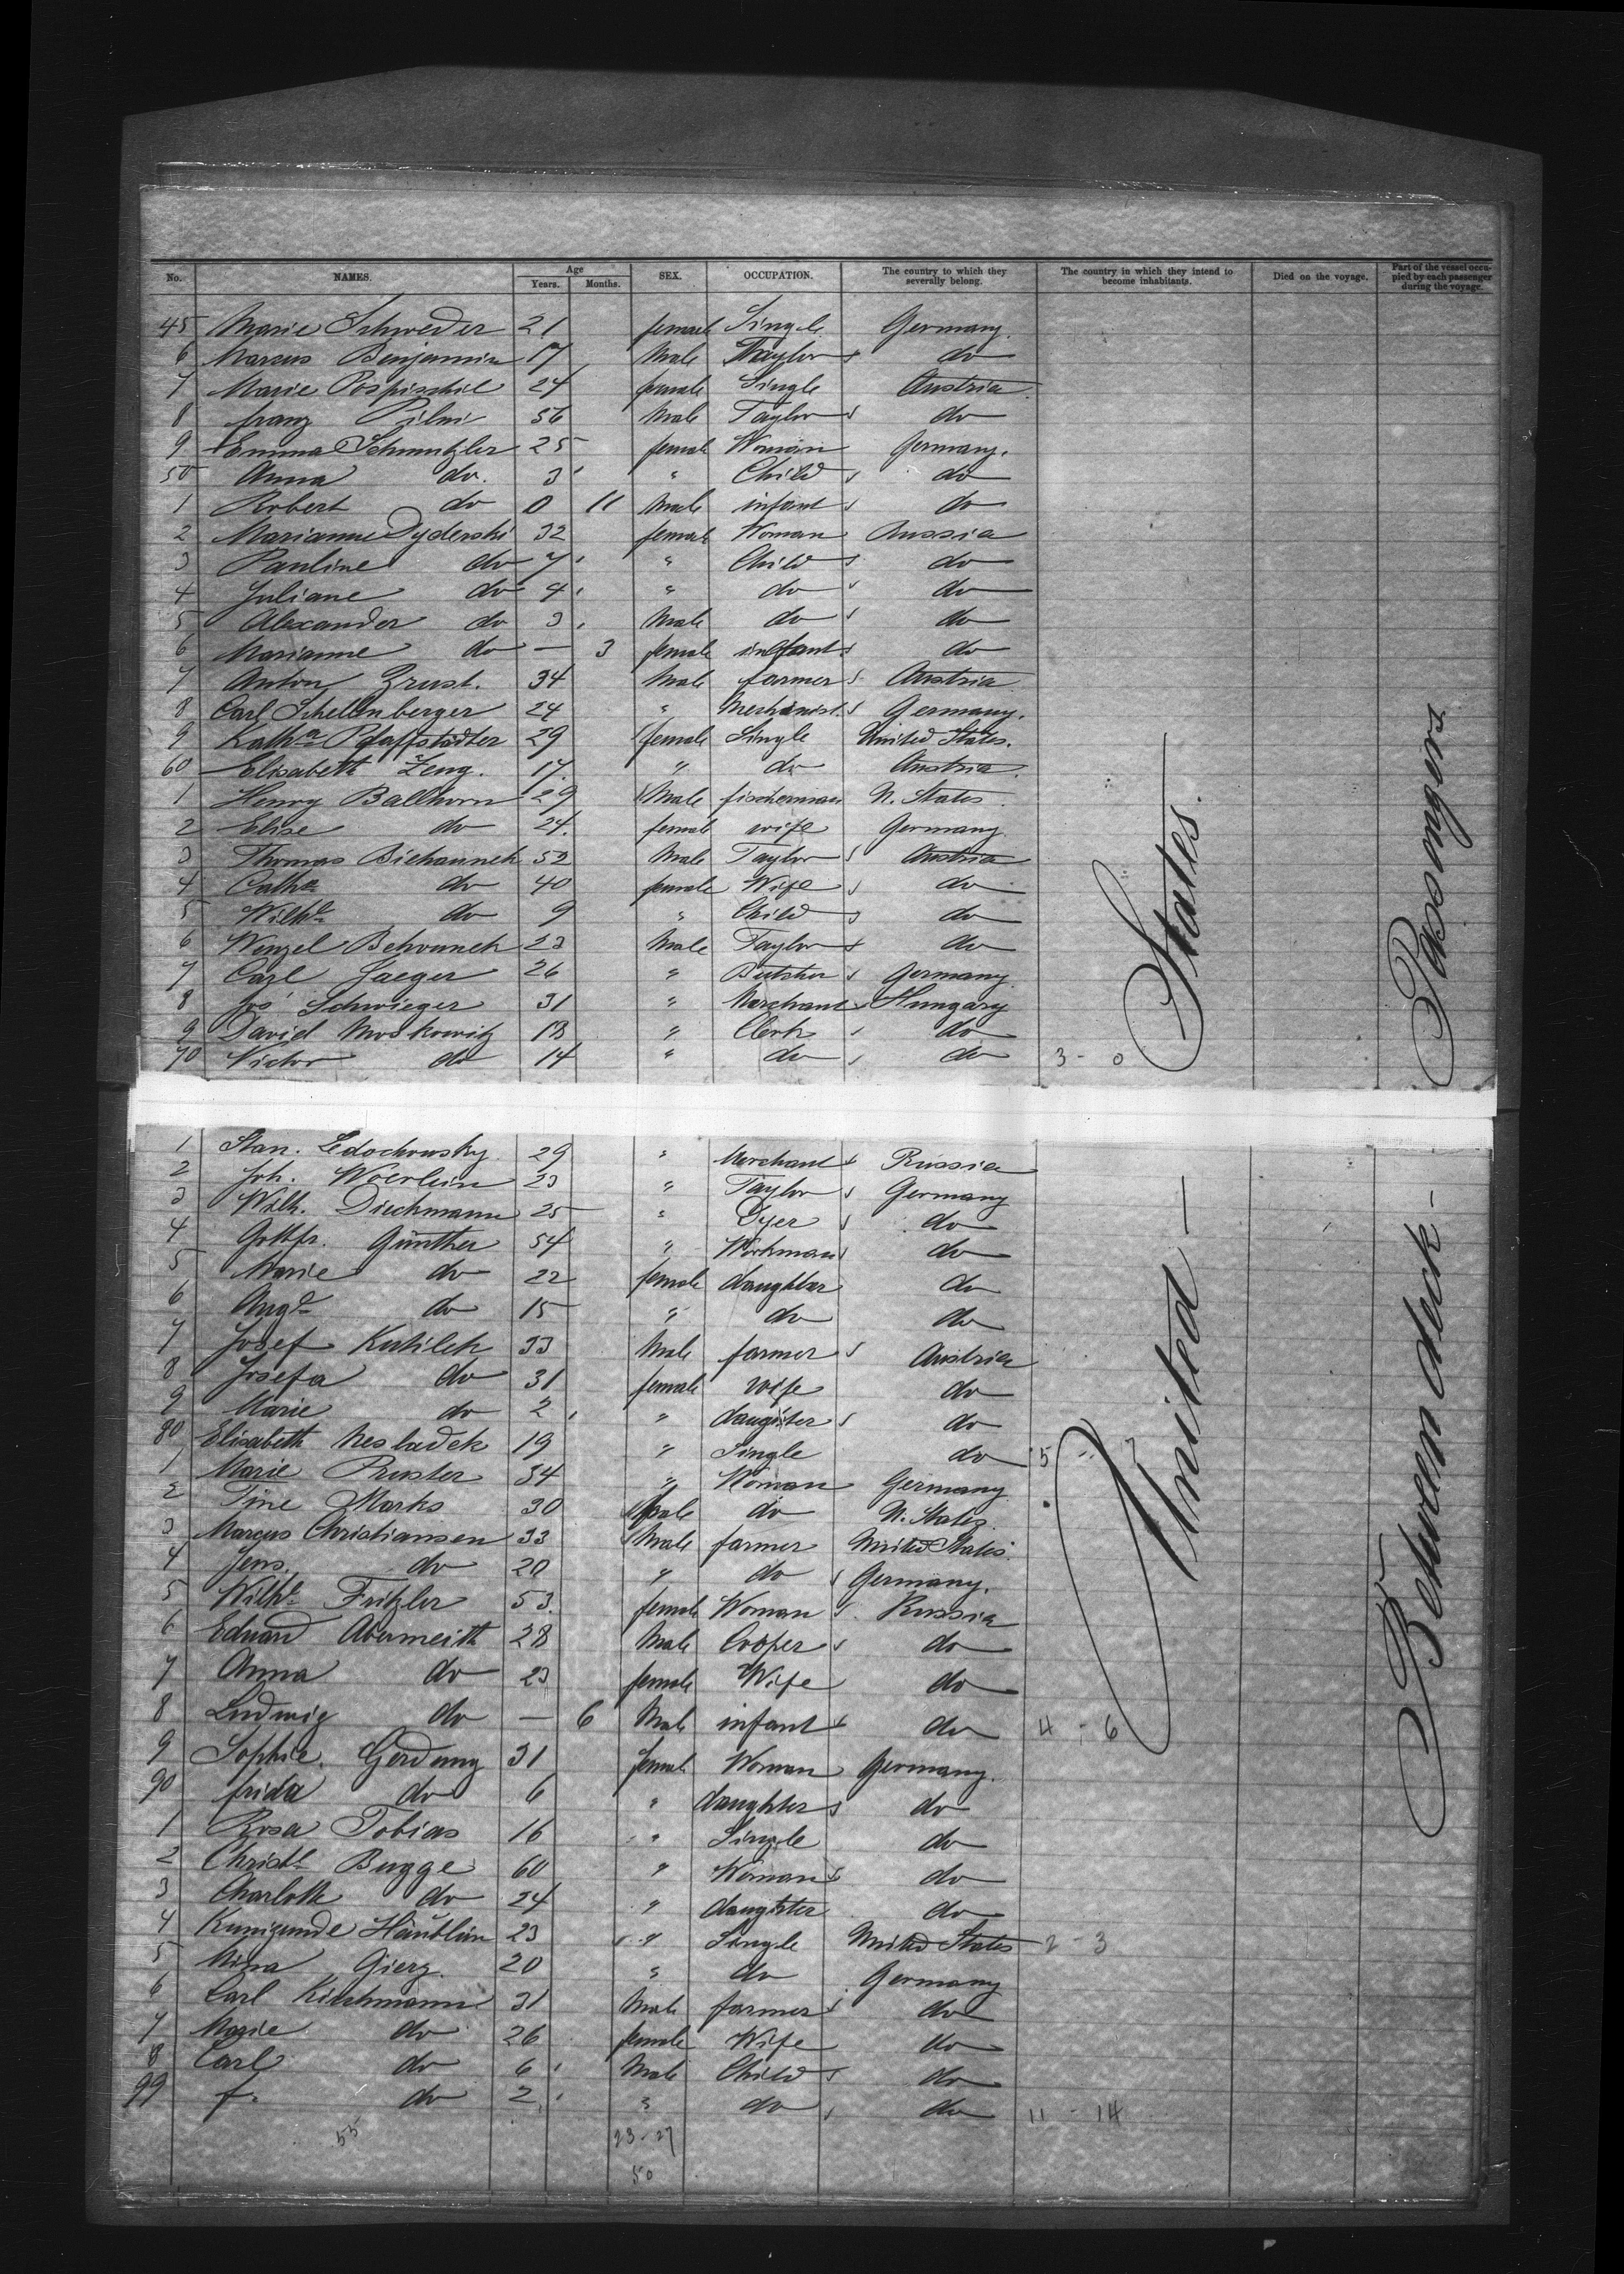 No. NAMES. Age Years. Months. SEX. OCCUPATION. The country to which they severally belong. The country in which they intend to become inhabitants. Died on the voyage. Part of the vessel occupied by each passenger during the voyage.
45 Marie Schweder 21 female Single Germany.
6 Marcus Benjamin 17 Male Taylor do
7 Marie Pospischil 24 female Single Austria
8 franz Pilni 56 Male Taylor do
9 Emma Schmutzler 25 female Woman Germany.
50 Anna do. 3 " Child do
1 Robert do 0 11 Male infant do
2 Marianne Dyderski 32 female Woman Russia
3 Pauline do 7 " Child do
4 Juliane do 4 " do do
5 Alexander do 3 Male do do
6 Marianne do — 3 female infant do
7 Anton Zrust. 34 Male farmer Austria
8 Carl Schellenberger 24 " Mechanist. Germany.
9 Katha Pfaffstädter 29 female Single United States.
60 Elisabeth Zeng. 17. " do Austria.
1 Henry Ballhorn 29 Male fischerman U. States
2 Elise do 24. female wife Germany
3 Thomas Biehaunek 52 Male Taylor Austria
4 Catha do 40 female Wife do
5 Wilhe do 9 " Child do
6 Wenzel Behounek 23 Male Taylor do
7 Carl Jaeger 26 " Butcher Germany
8 Jos Schwieger 31 " Merchant Hungary
9 David Moskowitz 18 " Clerk do
70 Victor do 14 " do do 3 - 0
1 Stan. Ledochowsky 29 " Merchant Russia
2 Joh. Woerlein 23 " Taylor Germany
3 Wilh. Diechmann 25 " Dyer do
4 Gottfr. Günther 54 " Workman do
5 Marie do 22 female daughter do
6 Augte do 15 " do do
7 Josef Kubilek 33 Male farmer Austria
8 Josefa do 31 female wife do
9 Marie do 2 " daughter do
80 Elisabeth Nesladek 19 " Single do 5 - 7
1 Marie Pruster 34 " Woman Germany
2 Tine Marks 30 do U. States
3 Marcus Christiansen 33 Male farmer United States.
4 Jens. do 20 " do Germany.
5 Wilhe Fritzler 53. female Woman Russia
6 Eduard Abermeith 28 Male Cooper do
7 Anna do 23 female Wife do
8 Ludwig do — 6 Male infant do 4 - 6
9 Sophie. Gerdung 31 female Woman Germany.
90 frida do 6 " daughter do
1 Rosa Tobias 16 " Single do
2 Christe Bugge 60 " Woman do
3 Charlotte do 24 " daughter do
4 Kunigunde Häublein 23 " Single United States 2 - 3
5 Mina Gierz. 20 " do Germany
6 Carl Kirchmann 31 Male farmer do
7 Marie do 26 female Wife do
8 Carl do 6 Male Child do
99 f. do 2 " do do 11 - 14
55 23 - 27
50
United States.
Between deck - Passengers